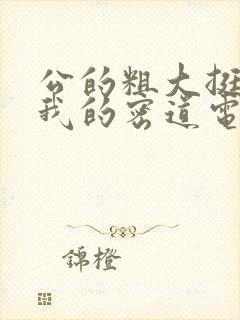 公的粗大挺
我的密道电
錦橙